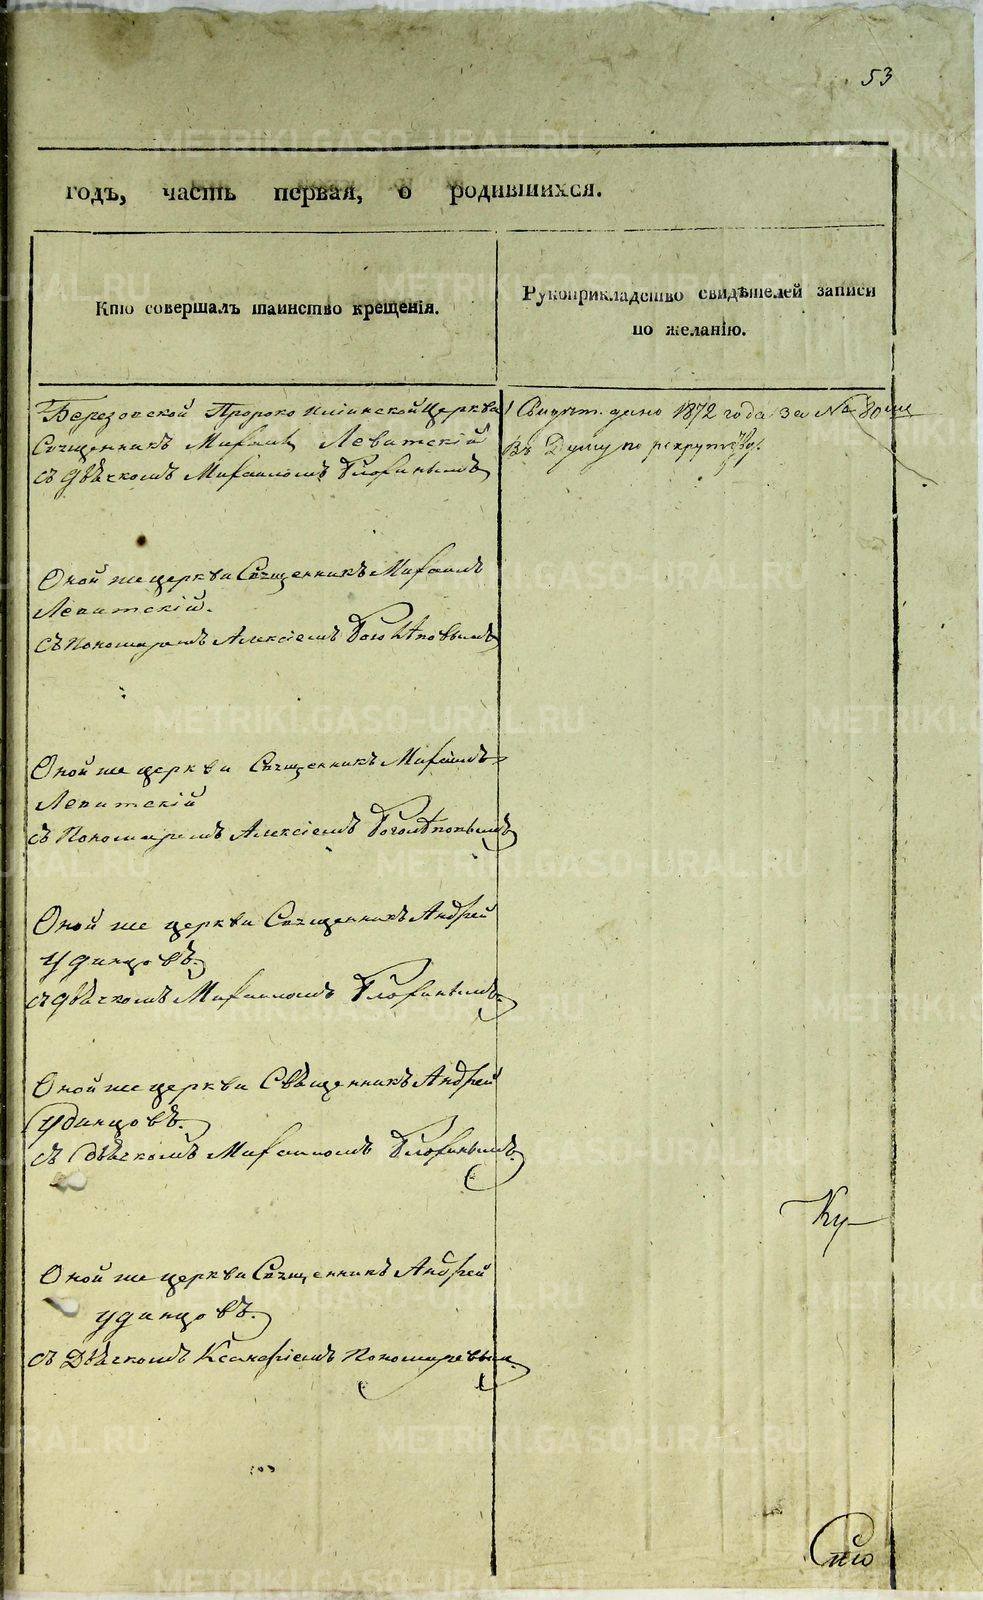 53
годъ, часть первая, о родившихся.
Кто совершалъ таинство крещенія.
Рукоприкладство свидѣтелей записи
по желанію.
Березовской Пророко Илiинской Церкви
Священникъ Михаилъ Левитскій
съ Дьячкомъ Михаиломъ
Свидѣт. дано 1872 года за №
въ Думу по рекрутству.
Оной же церкви Священникъ Михаилъ
Левитскій.
съ Пономаремъ Алексіемъ Боголѣповымъ
Оной же церкви Священникъ Михаилъ
Левитскій
съ Пономаремъ Алексіемъ Боголѣповымъ
Оной же церкви Священникъ Андрей
Удинцовъ.
съ Дьячкомъ Михаиломъ
Оной же церкви Священникъ Андрей
Удинцовъ.
съ Дьячкомъ Михаиломъ
Ку-
Оной же церкви Священникъ Андрей
Удинцовъ.
съ Дьячкомъ Пономаревым.
METRIKI.GASO-URAL.RU